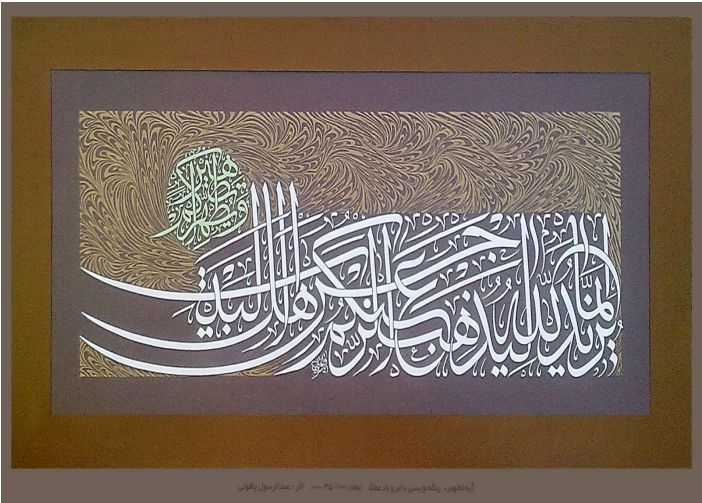 إنما يريد الله ليذهب عنكم الرجس أهل البيت
ويطهركم تطهيرا
آیه تطهیر، رنگه نویسی با ابر و باد مطلا ابعاد: ۱۰۰×۴۵ اثر : عبدالرسول یاقوتی